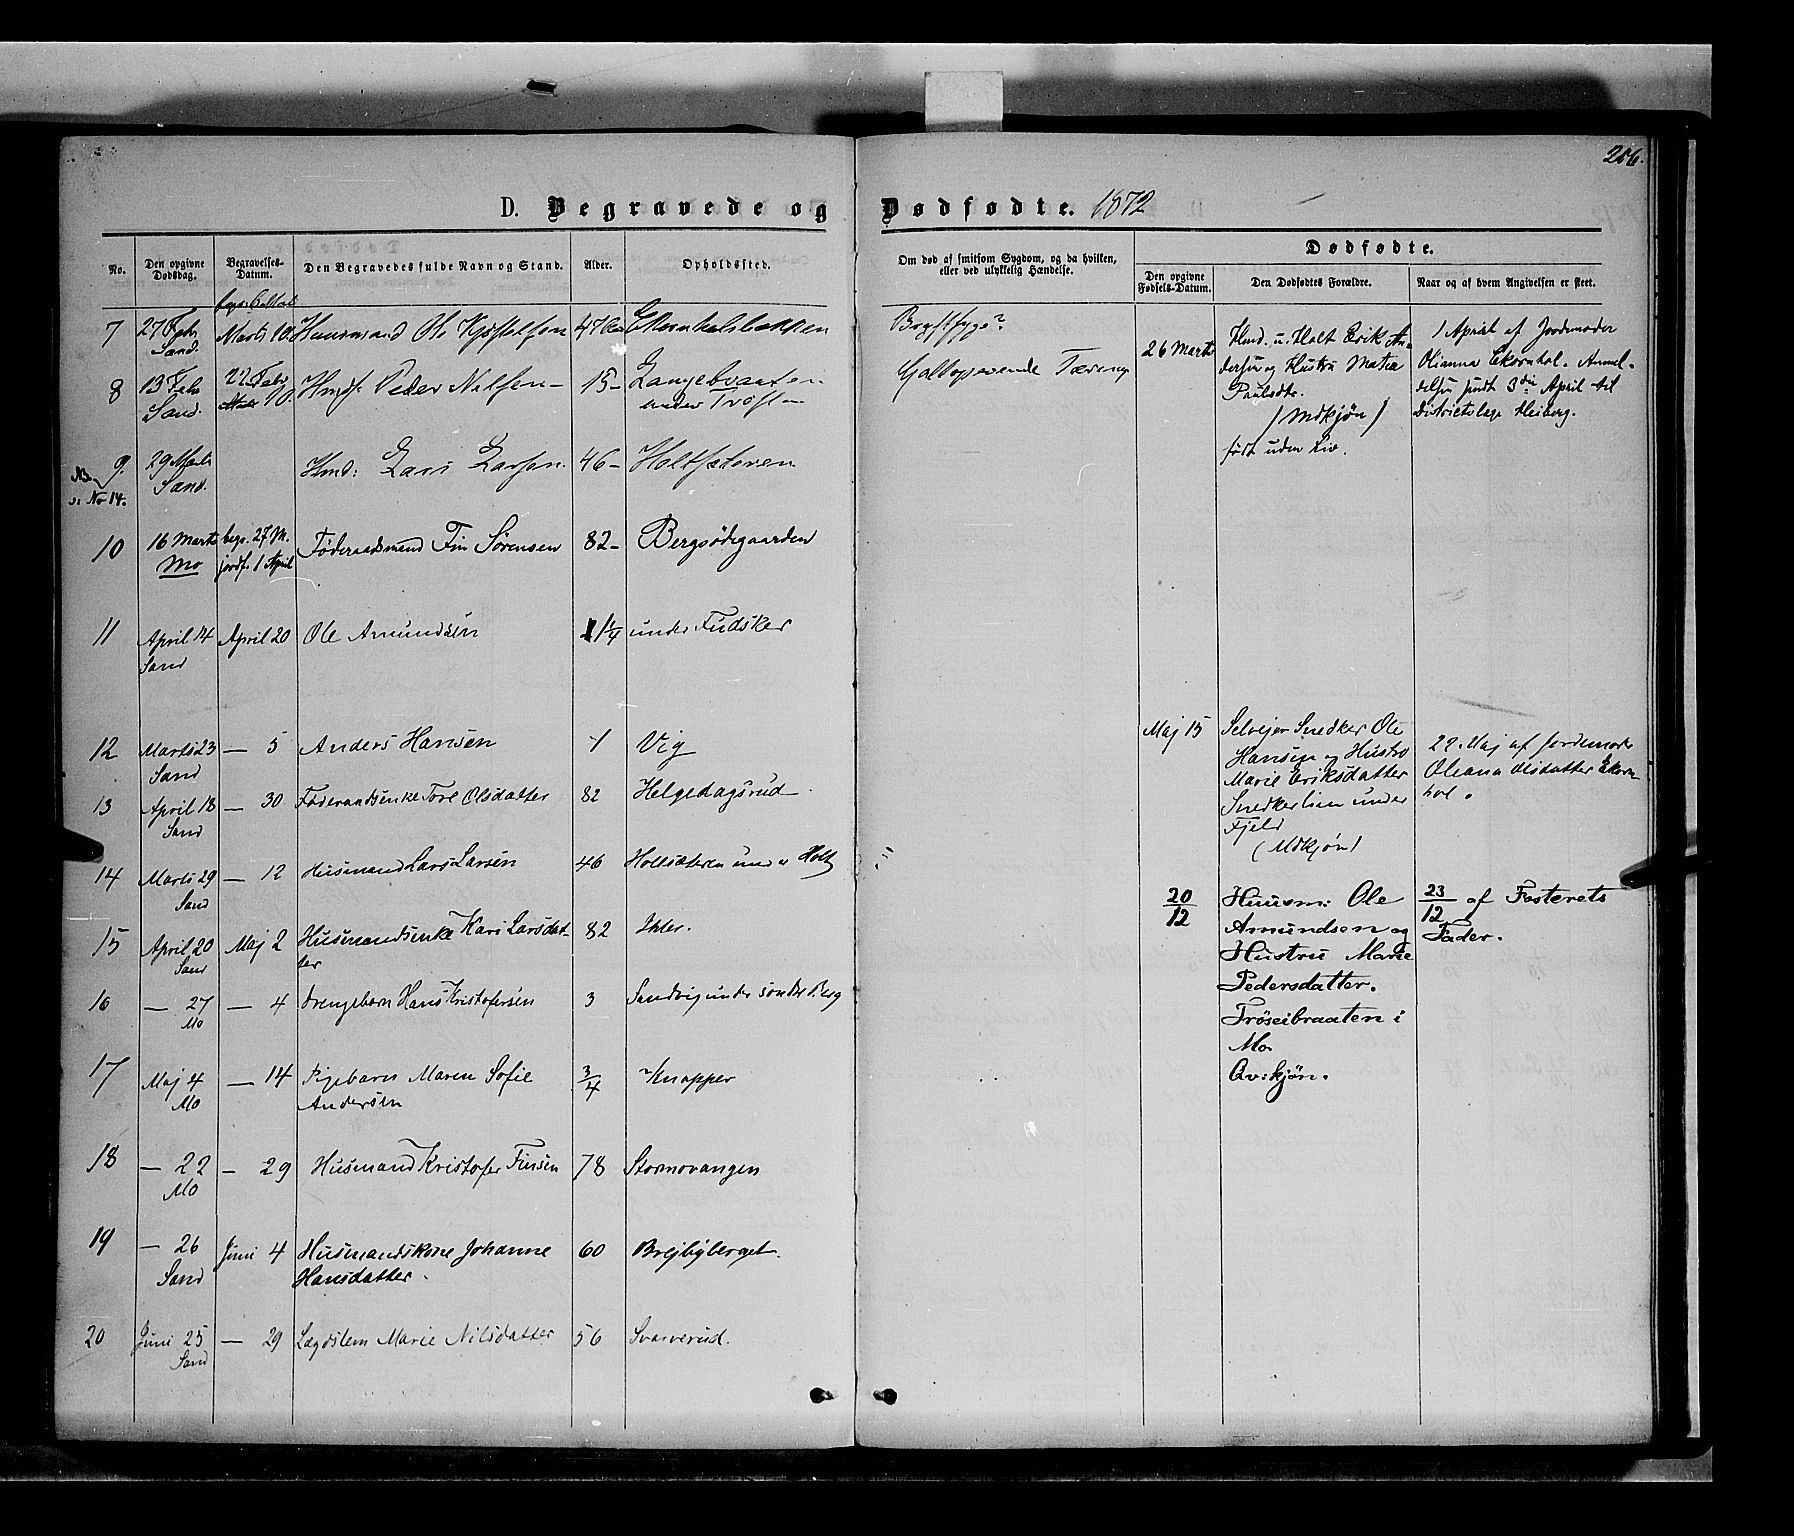 256.
D. Begravede og Dødfødte. 1872
No.
Den opgivne Dødsdag.
Begravelses-Datum.
Den Begravedes fulde Navn og Stand.
Alder.
Opholdssted.
Om død af smitsom Sygdom, og da hvilken, eller ved ulykkelig Hændelse.
Dødfødte.
Den opgivne Fødsels-Datum.
Den Dødfødtes Forældre.
Naar og af hvem Angivelsen er skeet.
7 27 Febr Marts 10. Huusmand Ole 47 Brystsyge?
Sand.
8 13 Febr 22 Febr Hmdf. Peder Nilsen 15 - Langebraaten Tæring
Sand. under
9. 29 Marts Hmd: Lars Larsen. 46 - Holtsæteren
Sand.
v. No 14.
10 16 Marts begr. 27 M. Føderaadsmand Fin Sørensen 82 - Bergsødegaarden
Mo jordf. 1 April
11 April 14 April 20 Ole Amundsen 1 1/4 under Fudsker
Sand
12 Marts 23 — 5 Anders Hansen 1 Vig
Sand
13 April 18 — 30 Føderaadsenke Tore Olsdatter 82 Helgedagsrud
Sand
14 Marts 29 — 12 Husmand Lars Larsen 46 Holtsæteren under Holt
Sand
15 April 20 Maj 2 Husmandsenke Kari Larsdat- 82 Ihler.
Sand ter
16 — 27 — 4 Drengebarn Hans Kristofersen 3 Sandvig under søndre Berg
Mo
17 Maj 4 — 14 Pigebarn Maren Sofie 3/4 Knapper
Mo Andersen
18 — 22 — 29 Husmand Kristofer Finsen 78 Stormovangen
Mo
19 — 26 Juni 4 Husmandskone Johanne 60 Brejbyberget.
Sand Hansdatter.
20 Juni 25 — 29 Lægdslem Marie Nilsdatter 56 Svarverud.
Sand
26 Marts Hmd. u. Holt Erik An-
dersen og Hustru Mathea
Paulsdtr.
(Mdkjøn)
født uden Liv.
1 April af Jordemoder
Olianna Ekornhol. Anmel-
delse sendt 3die April til
Districtslæge Heiberg.
Maj 15 Selvejer Snedker Ole
Hansen og Hustru
Marie Eriksdatter
Snedkerlien under
Fjeld
(Mdkjøn)
22. Maj af Jordemoder
Oleana Olsdatter Ekorn-
hol.
20/12 Huusm: Ole
Amundsen og
Hustru Marie
Pedersdatter.
Trøseibraaten i
Mo.
Qv:kjøn.
23/12 af Fosterets
Fader.